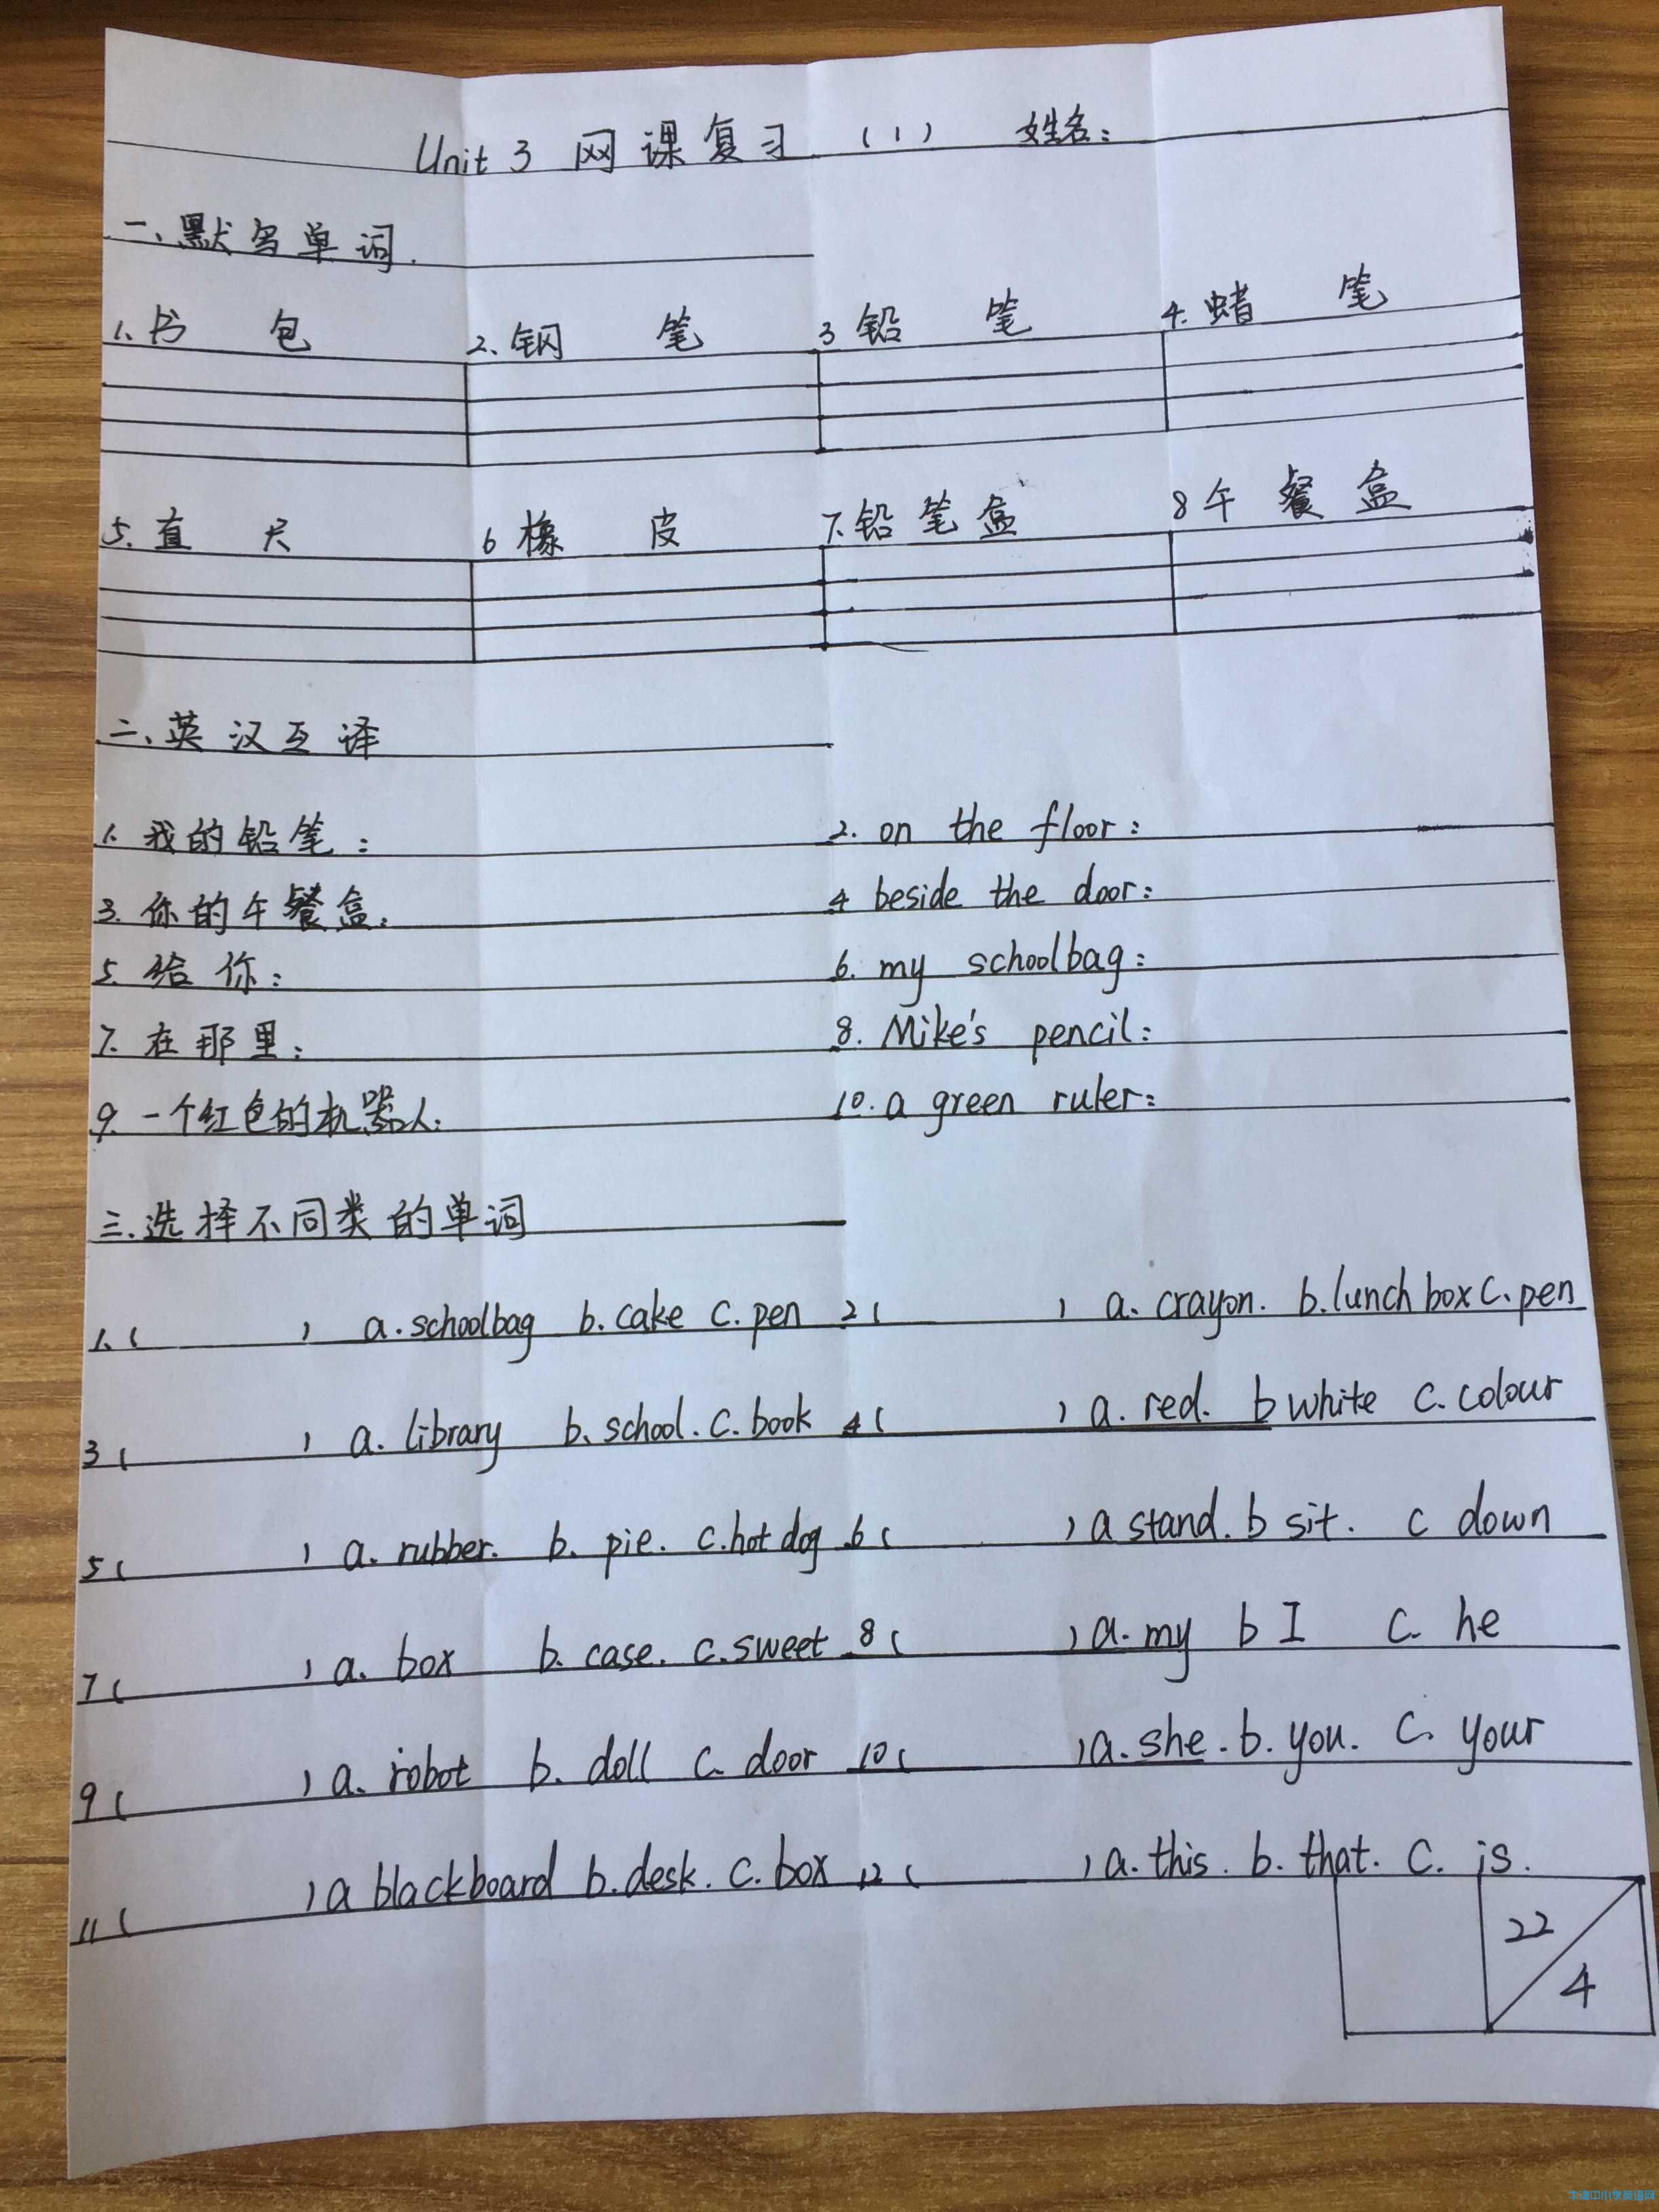 Unit 3 网课复习 (1) 姓名:
一、默写单词.
1.书包 2.钢笔 3 铅笔 4.蜡笔
5.直尺 6 橡皮 7.铅笔盒 8 午餐盒
二、英汉互译
1. 我的铅笔: 2. on the floor:
3. 你的午餐盒: 4 beside the door:
5. 给你: 6. my schoolbag:
7. 在那里: 8. Mike's pencil:
9. 一个红色的机器人: 10. a green ruler:
三.选择不同类的单词
1.( ) a.schoolbag b.cake c.pen 2( ) a. crayon. b.lunch box c.pen
3( ) a. library b.school. c.book 4( ) a. red. b white c.colour
5( ) a. rubber. b. pie. c.hot dog 6( ) a stand. b sit. c down
7( ) a. box b. case. c.sweet 8( ) a. my b I c. he
9( ) a. robot b. doll c. door 10( ) a. she. b. you. c. your
11( ) a blackboard b.desk. c.box 12( ) a. this. b. that. c. is.
22
4
牛津中小学英语网